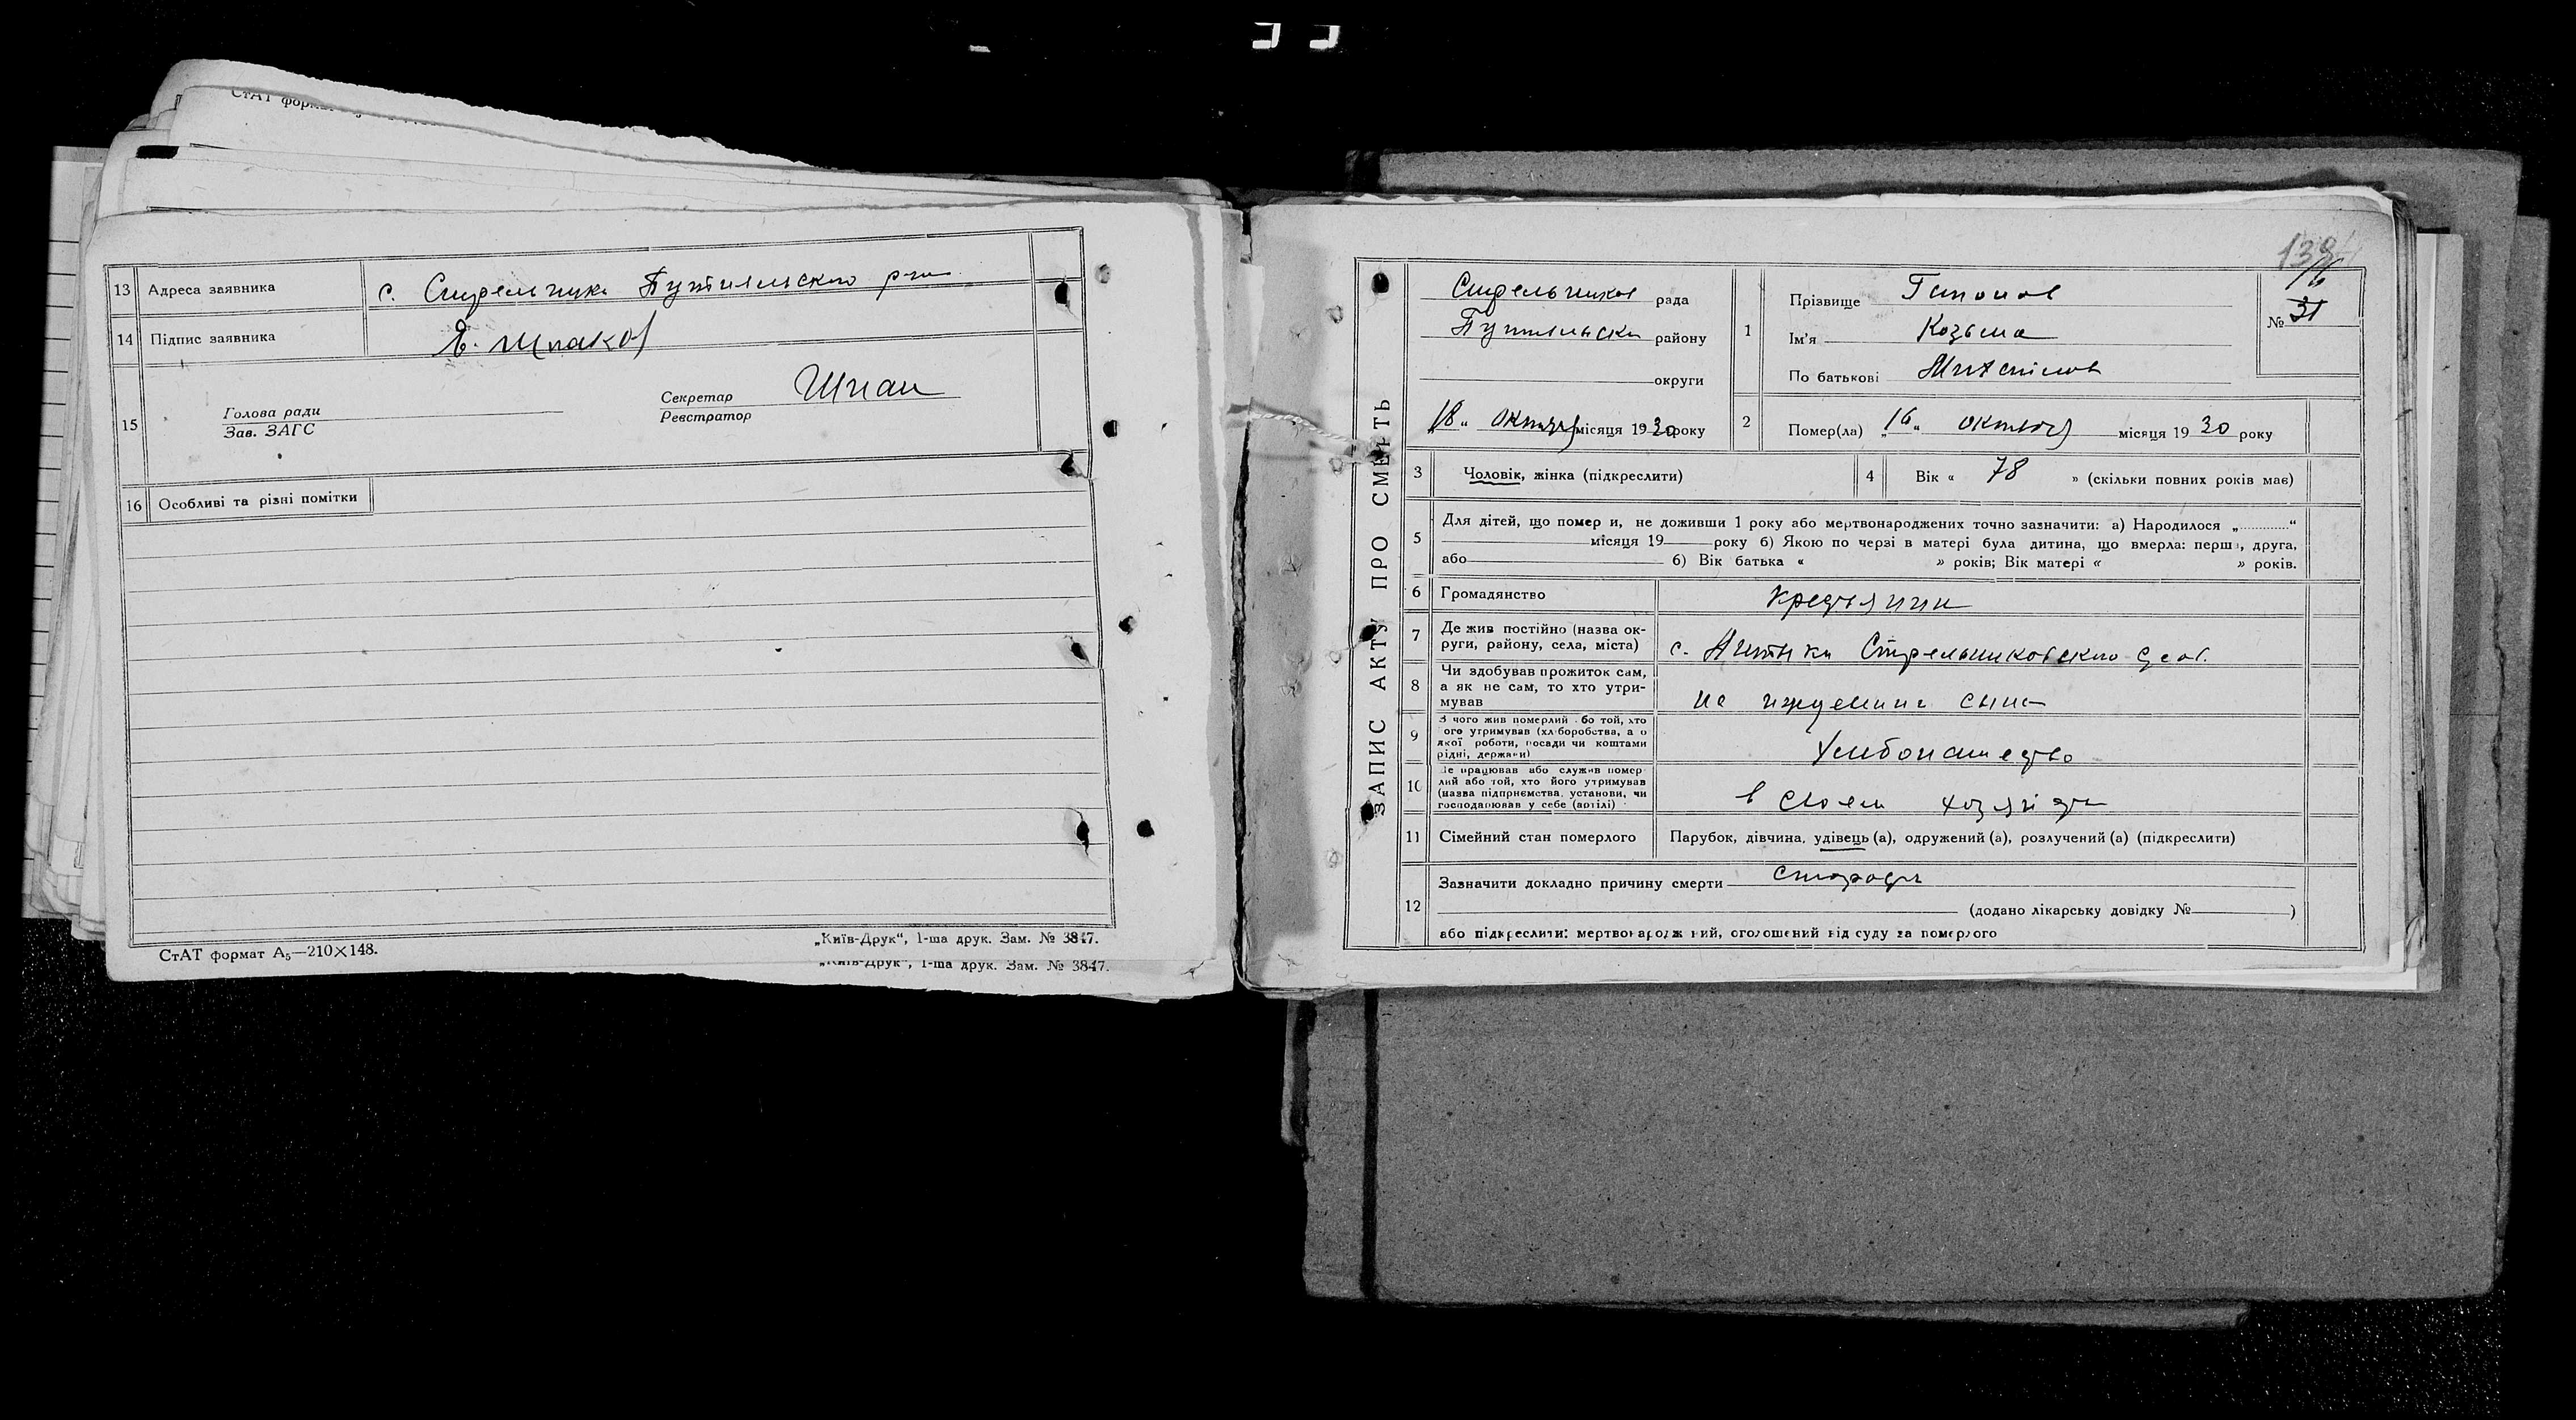 СтАТ формат
13 Адреса заявника с. Стрельники Путивльского р-на
14 Підпис заявника Шпаков
15 Голова ради
Зав. ЗАГС
Секретар
Реєстратор
16 Особливі та різні помітки
СтАТ формат А5—210×148.
„Київ-Друк“, 1-ша друк. Зам. № 3847.
„Київ-Друк“, 1-ша друк. Зам. № 3847.
ЗАПИС АКТУ ПРО СМЕРТЬ
рада
району
округи
„18“ октября місяця 1930 року
1 Прізвище Гапонов
Ім'я Козьма
По батькові
№ 31
16
2 Помер(ла) „16“ октября місяця 1930 року
3 Чоловік, жінка (підкреслити)
4 Вік « 78 » (скільки повних років має)
5 Для дітей, що помер и, не доживши 1 року або мертвонароджених точно зазначити: а) Народилося „ “
місяця 19 року б) Якою по черзі в матері була дитина, що вмерла: перша, друга,
або б) Вік батька « » років; Вік матері « » років.
6 Громадянство крестьянин
7 Де жив постійно (назва ок-
руги, району, села, міста) с. Стрельниковского с/сов.
8 Чи здобував прожиток сам,
а як не сам, то хто утри-
мував на иждевении сына
9 З чого жив померлий або той, хто
його утримував (хліборобства, а о
якої роботи, посади чи коштами
рідні, держави) Хлебопашество
10 Де працював або служив помер
лий або той, хто його утримував
(назва підприємства, установи, чи
господарював у себе (артілі) в своем хозяйстве
11 Сімейний стан померлого Парубок, дівчина, удівець (а), одружений (а), розлучений (а) (підкреслити)
12 Зазначити докладно причину смерти старость
(додано лікарську довідку № )
або підкреслити: мертвонароджений, оголошений від суду за померлого